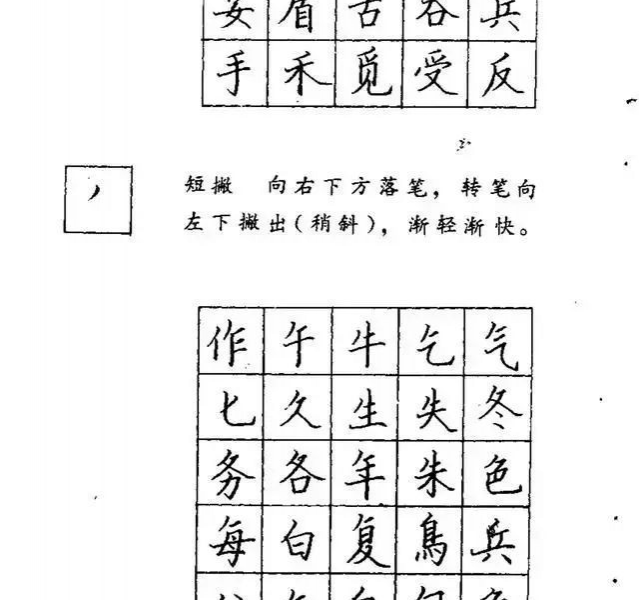 妥 盾 舌 谷 兵
手 禾 觅 受 反
短撇 向右下方落笔,转笔向
左下撇出(稍斜),渐轻渐快。
作 午 牛 乞 气
七 久 生 失 冬
务 各 年 朱 色
每 白 复 鳥 兵